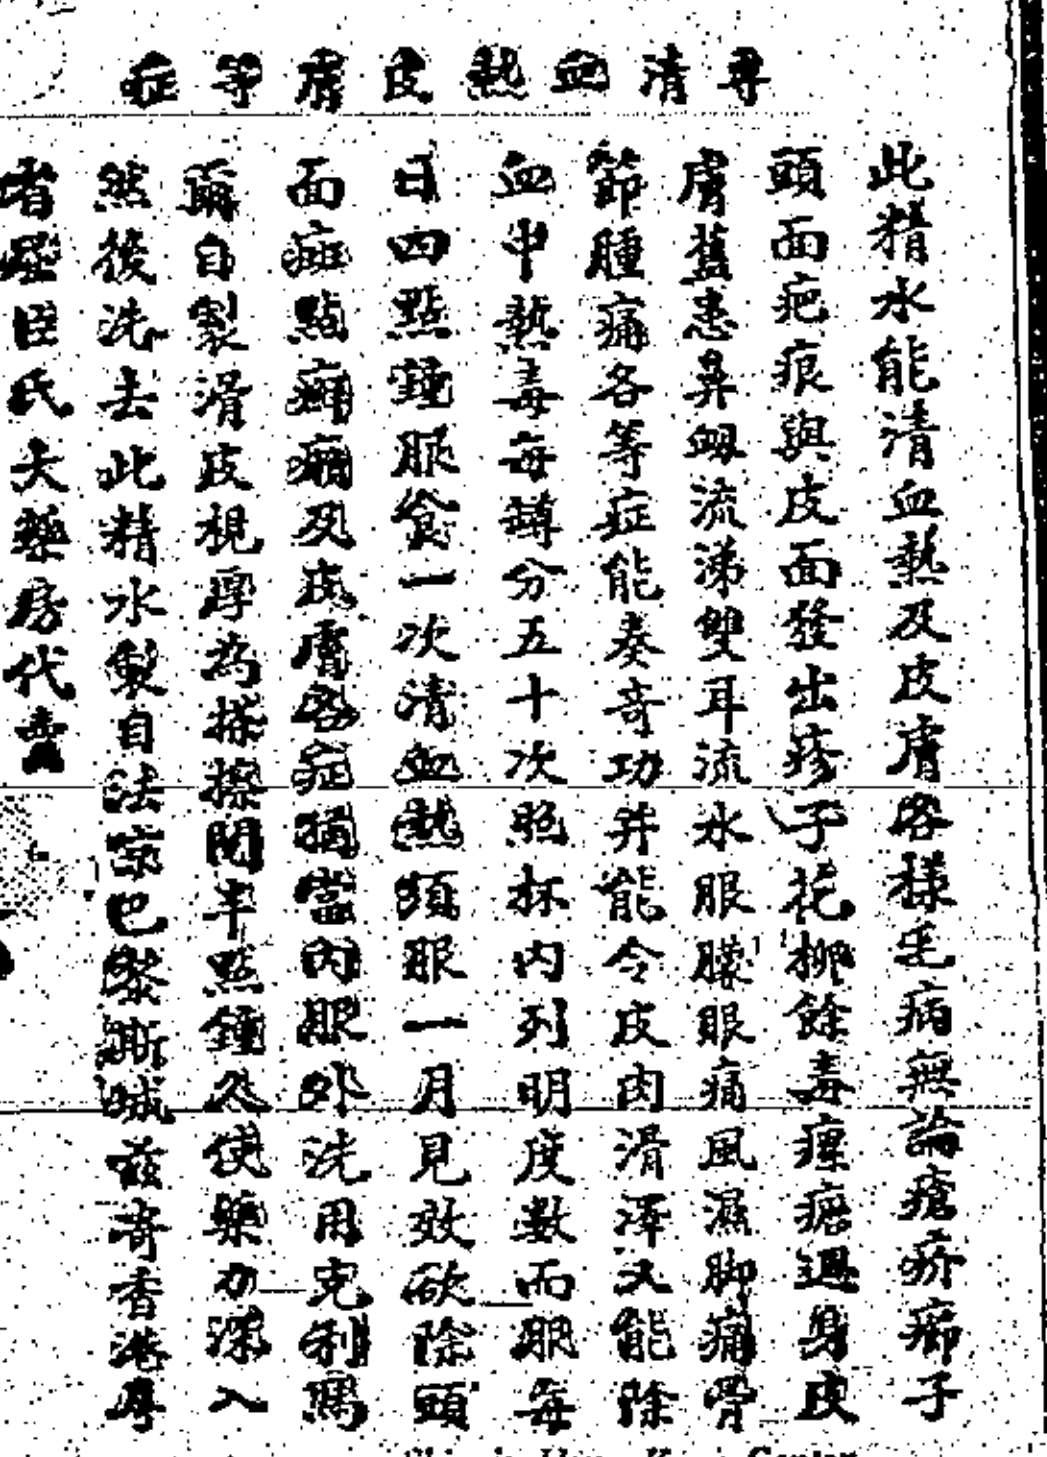 專清血熱皮膚等症
此精水能清血熱及皮膚各樣毛病無論瘡疥癤子
頭面疤痕與皮面發出疹子花柳餘毒瘰瘡過身皮
膚舊患鼻衂流涕雙耳流水眼朦眼痛風濕脚痛骨
節腫痛各等症能奏奇功并能令皮肉滑澤又能除
血中熱毒每罇分五十次照杯內列明度數而服每
日四點鐘服食一次清血熱須服一月見效欲除頭
面斑點癬癩及皮膚各症獨當內服外洗用克利馬
自製滑皮梘厚為搽擦閱半點鐘久使藥力深入
然後洗去此精水製自法京巴黎斯城兹寄香港
省臣氏大藥房代賣